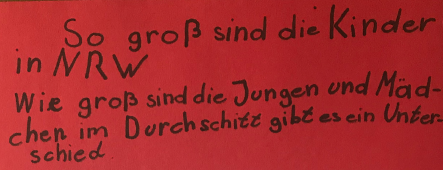 So groß sind die Kinder
in NRW
Wie groß sind die Jungen und Mäd-
chen im Durchschitt gibt es ein Unter-
schied